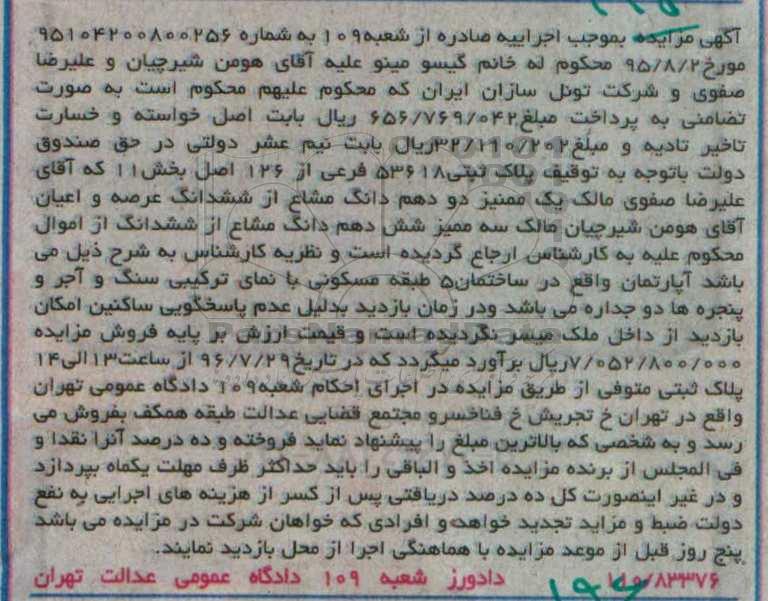 آگهی مزایده بموجب اجراییه صادره از شعبه۱۰۹ به شماره ۹۵۱۰۴۲۰۰۸۰۰۲۵۶
مورخ۹۵/۸/۲ محکوم له خانم گیسو مینو علیه آقای هومن شیرچیان و علیرضا
صفوی و شرکت تونل سازان ایران که محکوم علیهم محکوم است به صورت
تضامنی به پرداخت مبلغ۶۵۶/۷۶۹/۰۴۲ ریال بابت اصل خواسته و خسارت
تاخیر تادیه و مبلغ۳۲/۱۱۰/۲۰۲ریال بابت نیم عشر دولتی در حق صندوق
دولت باتوجه به توقیف پلاک ثبتی۵۳۶۱۸ فرعی از ۱۲۶ اصل بخش۱۱ که آقای
علیرضا صفوی مالک یک ممنیز دو دهم دانگ مشاع از ششدانگ عرصه و اعیان
آقای هومن شیرچیان مالک سه ممیز شش دهم دانگ مشاع از ششدانگ از اموال
محکوم علیه به کارشناس ارجاع گردیده است و نظریه کارشناس به شرح ذیل می
باشد آپارتمان واقع در ساختمان۵ طبقه مسکونی با نمای ترکیبی سنگ و آجر و
پنجره ها دو جداره می باشد ودر زمان بازدید بدلیل عدم پاسخگویی ساکنین امکان
بازدید از داخل ملک میسر نگردیده است و قیمت ارزش بر پایه فروش مزایده
۷/۰۵۲/۸۰۰/۰۰۰ریال برآورد میگردد که در تاریخ۹۶/۷/۲۹ از ساعت۱۳الی۱۴
پلاک ثبتی متوفی از طریق مزایده در اجرای احکام شعبه۱۰۹ دادگاه عمومی تهران
واقع در تهران خ تجریش خ فناخسرو مجتمع قضایی عدالت طبقه همکف بفروش می
رسد و به شخصی که بالاترین مبلغ را پیشنهاد نماید فروخته و ده درصد آنرا نقدا و
فی المجلس از برنده مزایده اخذ و الباقی را باید حداکثر ظرف مهلت یکماه بپردازد
و در غیر اینصورت کل ده درصد دریافتی پس از کسر از هزینه های اجرایی به نفع
دولت ضبط و مزاید تجدید خواهد و افرادی که خواهان شرکت در مزایده می باشد
پنج روز قبل از موعد مزایده با هماهنگی اجرا از محل بازدید نمایند.
۱۱۰/۸۳۳۷۶ دادورز شعبه ۱۰۹ دادگاه عمومی عدالت تهران